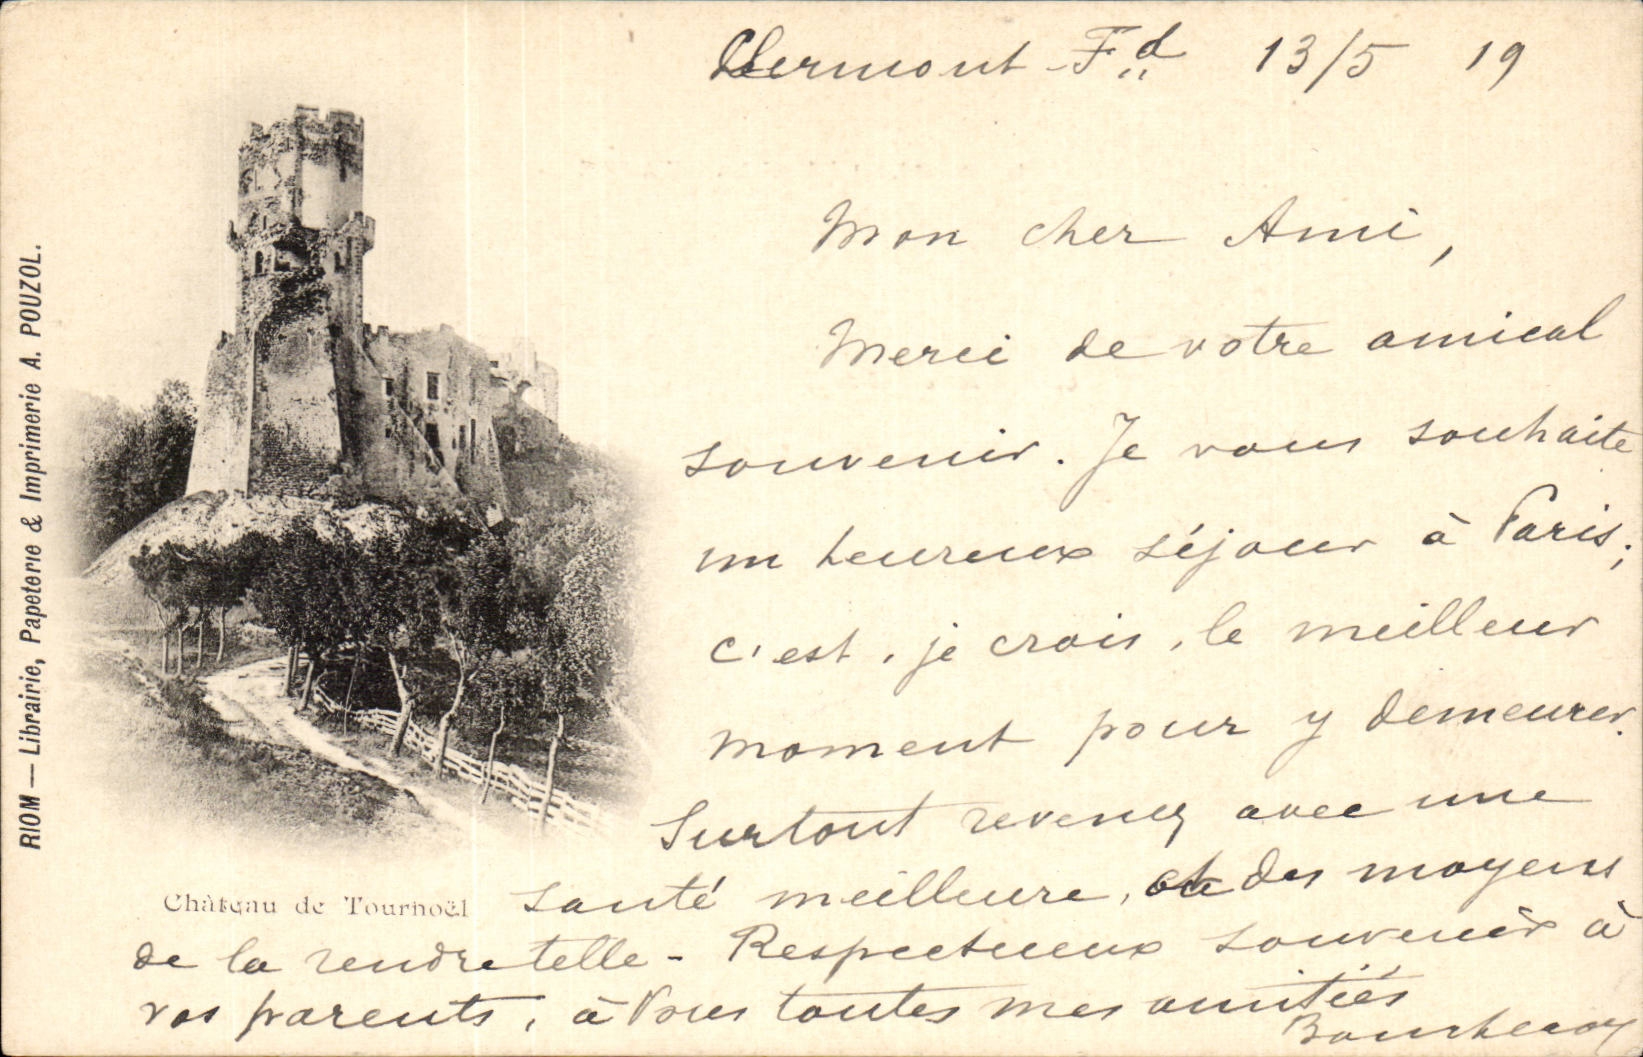 Clermont-Fd 13/5 19
Mon cher Ami,
Merci de votre amical
souvenir. Je vous souhaite
un heureux séjour à Paris;
c'est, je crois, le meilleur
moment pour y demeurer.
Surtout revenez avec une
santé meilleure, et des moyens
de la rendre telle - Respectueux souvenir à
vos parents, à Vous toutes mes amitiés
Château de Tournoël
RIOM — Librairie, Papeterie & Imprimerie A. POUZOL.